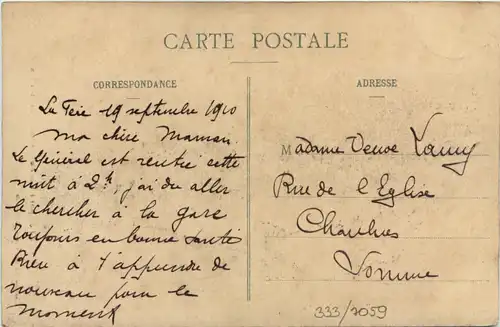 CARTE POSTALE
CORRESPONDANCE
La Fère 19 septembre 1910
ma chère Maman
Le Général est rentré cette
nuit à 2h, j'ai du aller
le chercher à la gare
Toujours en bonne santé
Rien à t'apprendre de
nouveau pour le
moment
ADRESSE
Madame Veuve Lamy
Rue de l'Eglise
Chaulnes
Somme
333/2059